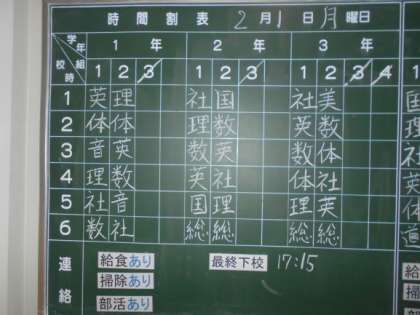 時間割表 2月1日月曜日
学年 1年 2年 3年
校時 組 1 2 3 1 2 3 1 2 3 4
1 英 理 社 国 社 美
2 体 体 理 数 英 数
3 音 英 数 英 数 体
4 理 数 英 社 体 社
5 社 音 国 理 理 英
6 数 社 総 総 総 総
連絡
給食あり 最終下校 17:15
掃除あり
部活あり